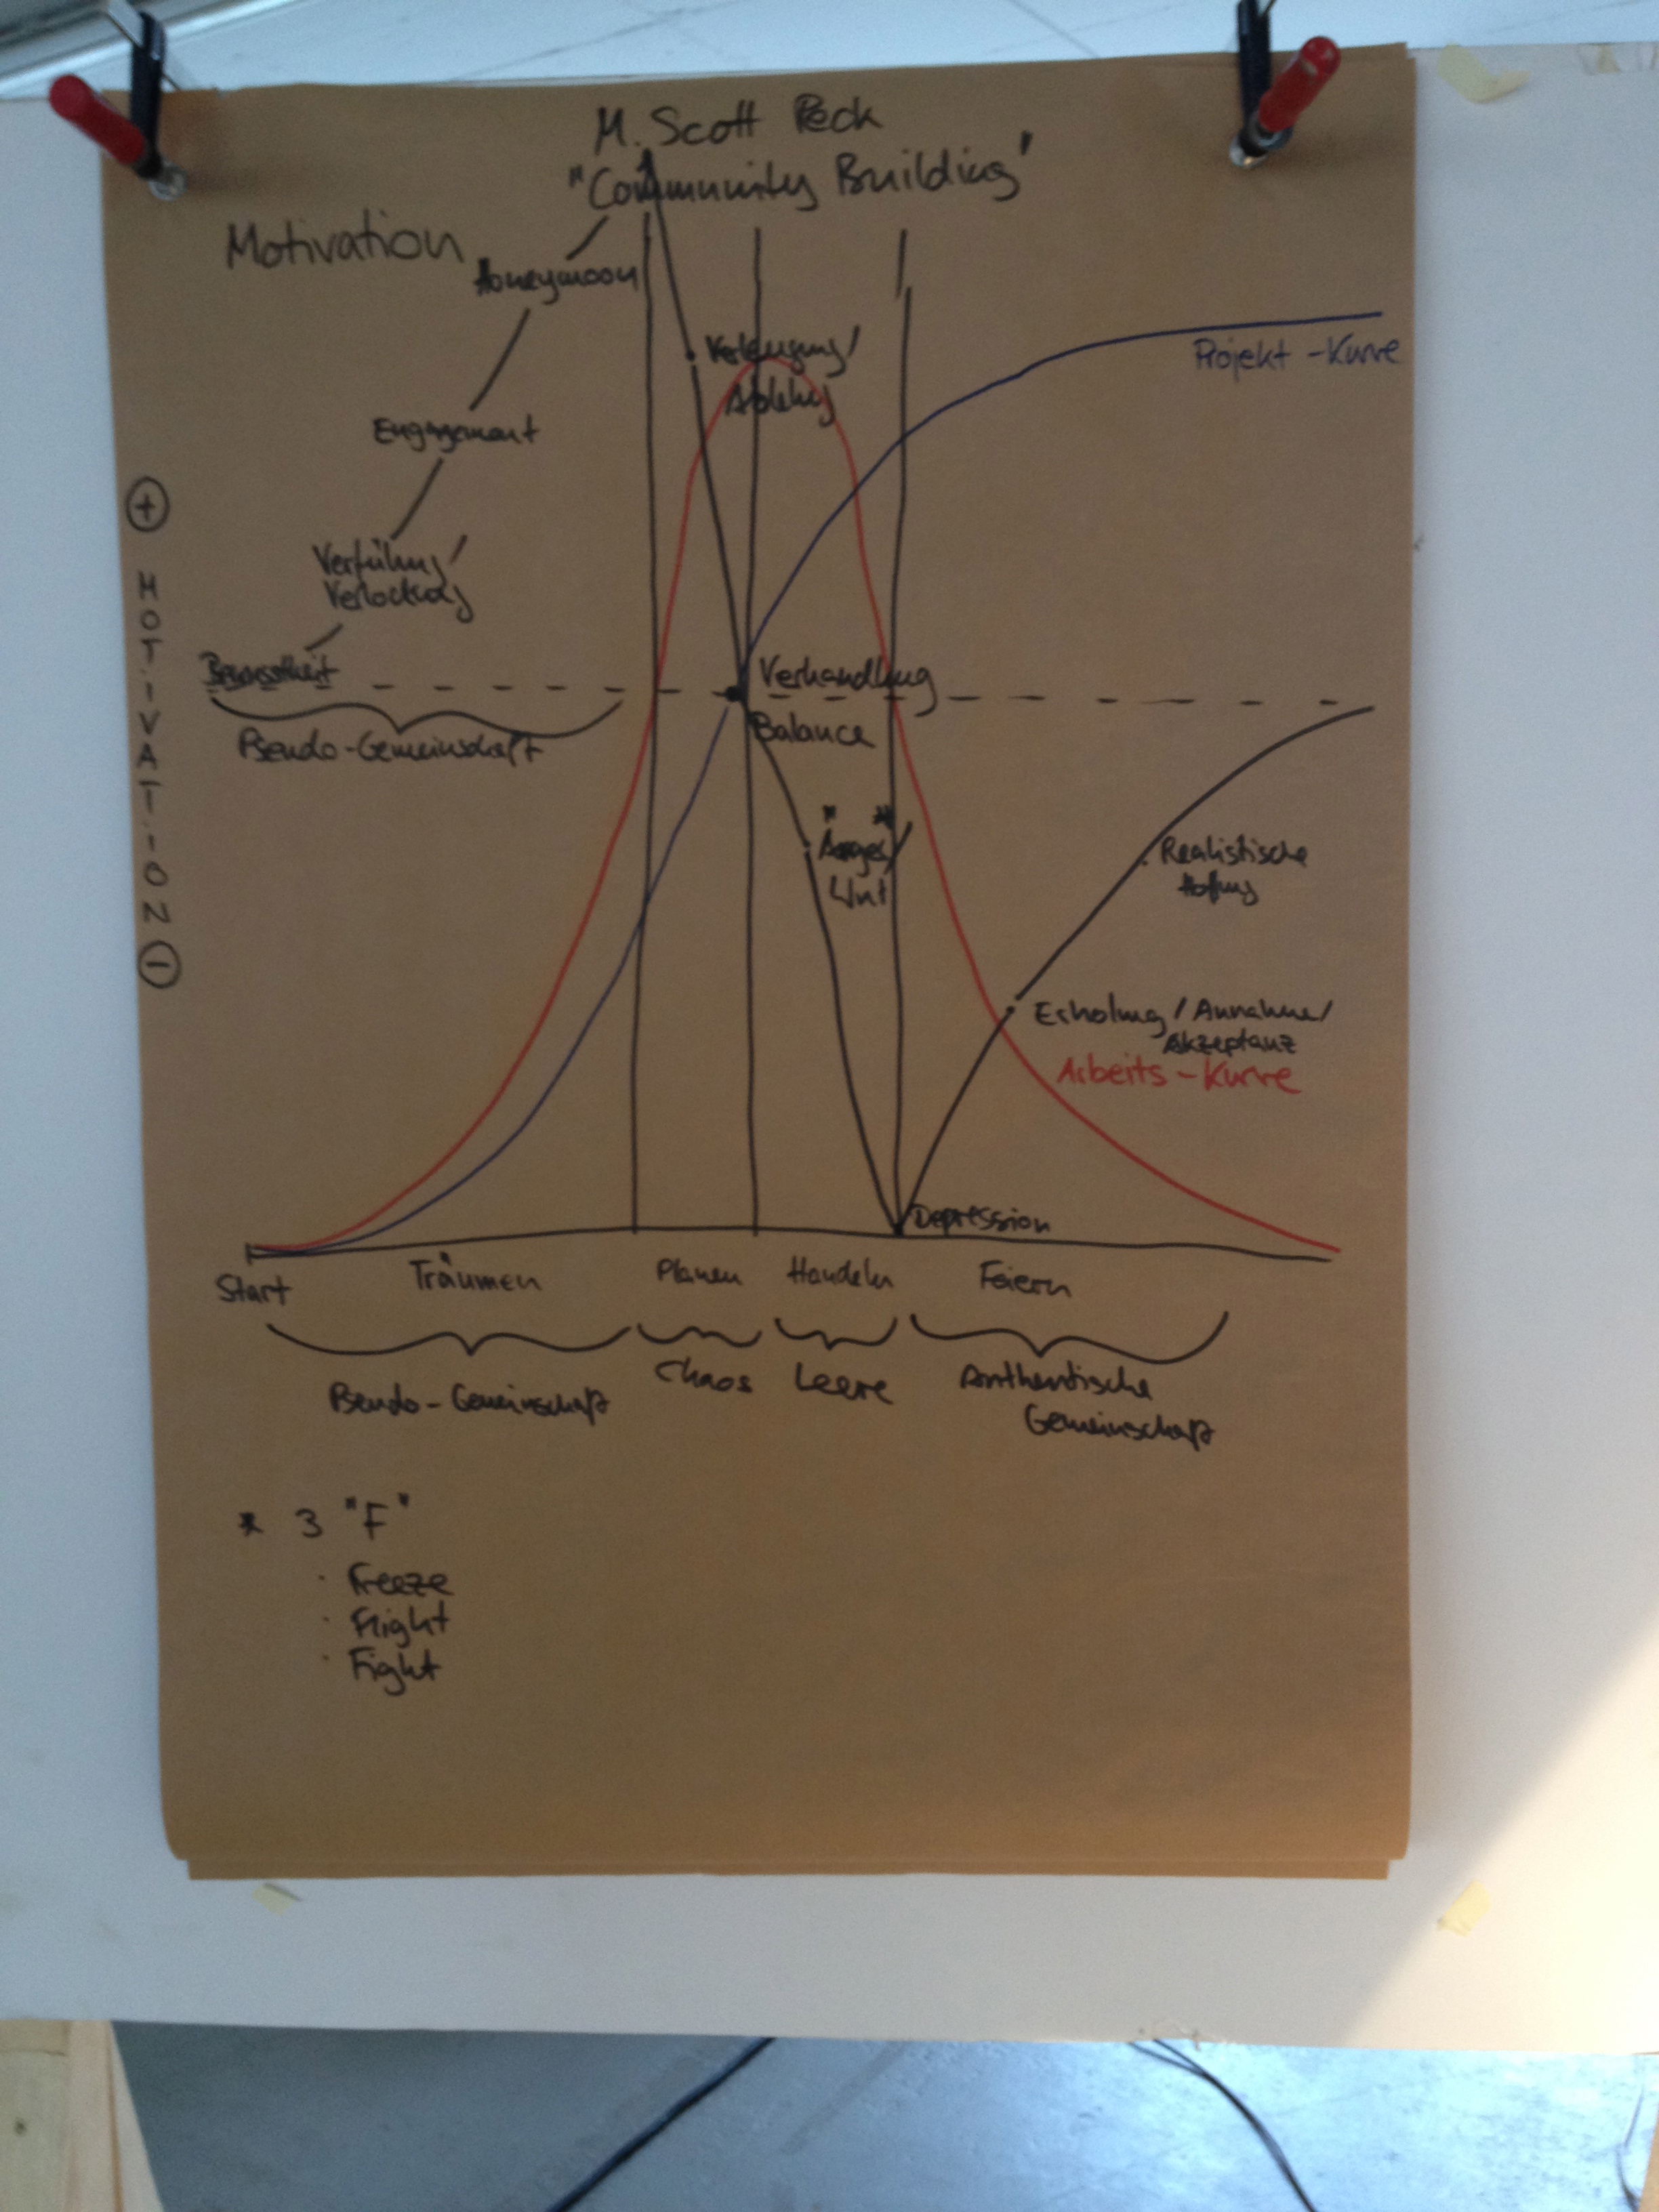 M. Scott Peck
"Community Building"
Motivation
Honeymoon
Verleugnung/
Ablehng
Projekt-Kurve
Engagement
+
MOTIVATION
-
Verführung/
Verlockung
Bewusstheit
Verhandlung
Balance
Pseudo-Gemeinschaft
"Ärger"/
Wut
Realistische
Hoffnung
Erholung/Annahme/
Akzeptanz
Arbeits-Kurve
Depression
Start Träumen Planen Handeln Feiern
Pseudo-Gemeinschaft Chaos Leere Authentische
Gemeinschaft
* 3 "F"
· Freeze
· Flight
· Fight